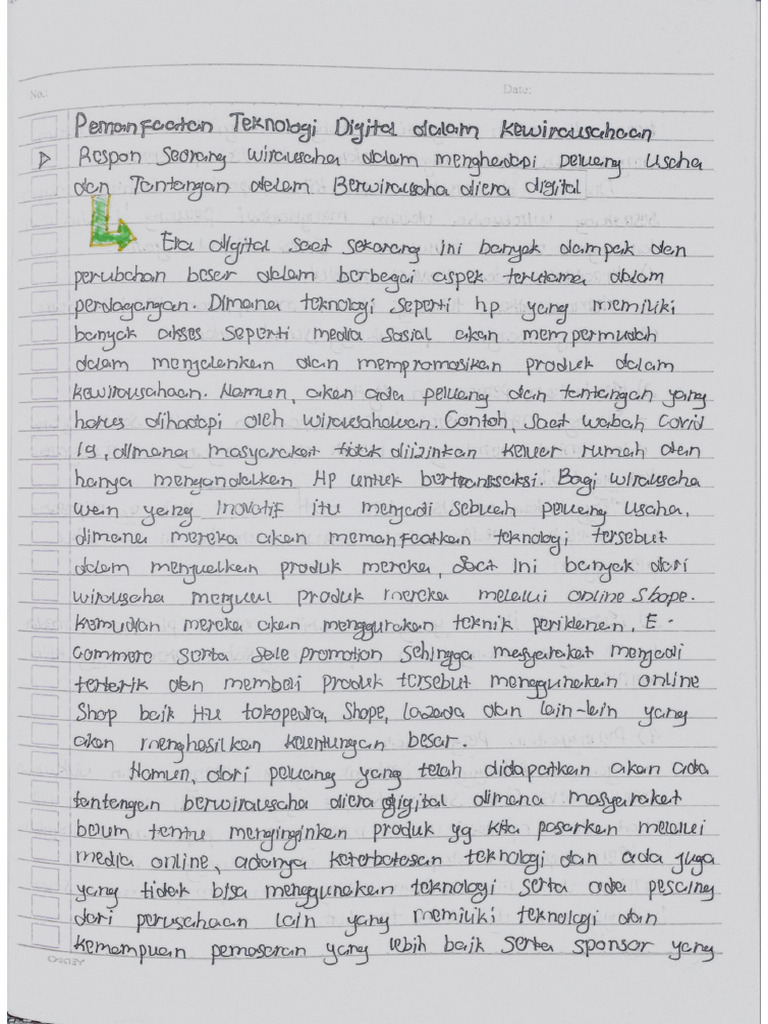 No.:
Date:
Pemanfaatan Teknologi Digital dalam kewirausahaan
Respon Seorang wirausaha dalam menghadapi peluang Usaha
dan Tantangan dalam Berwirausaha diera digital
Era digital saat sekarang ini banyak dampak dan
perubahan besar dalam berbagai aspek terutama dalam
perdagangan. Dimana teknologi seperti hp yang memiliki
banyak akses seperti media sosial akan mempermudah
dalam menjalankan dan mempromosikan produk dalam
kewirausahaan. Namun, akan ada peluang dan tantangan yang
harus dihadapi oleh wirausahawan. Contoh, saat wabah Covid
19, dimana masyarakat tidak diizinkan keluar rumah dan
hanya mengandalkan Hp untuk bertransaksi. Bagi wirausaha
wan yang inovatif itu menjadi sebuah peluang usaha,
dimana mereka akan memanfaatkan teknologi tersebut
dalam menjualkan produk mereka, Saat ini banyak dari
wirausaha menjual produk mereka melalui online Shope.
Kemudian mereka akan menggunakan teknik periklanan, E-
Commerc serta sale promotion sehingga masyarakat menjadi
tertarik dan membeli produk tersebut menggunakan online
Shop baik itu tokopedia, Shope, lazada dan lain-lain yang
akan menghasilkan keuntungan besar.
Namun, dari peluang yang telah didapatkan akan ada
tantangan berwirausaha diera digital dimana masyarakat
belum tentu menginginkan produk yg kita pasarkan melalui
media online, adanya keterbatasan teknologi dan ada juga
yang tidak bisa menggunakan teknologi serta ada pesaing
dari perusahaan lain yang memiliki teknologi dan
kemampuan pemasaran yang lebih baik serta sponsor yang